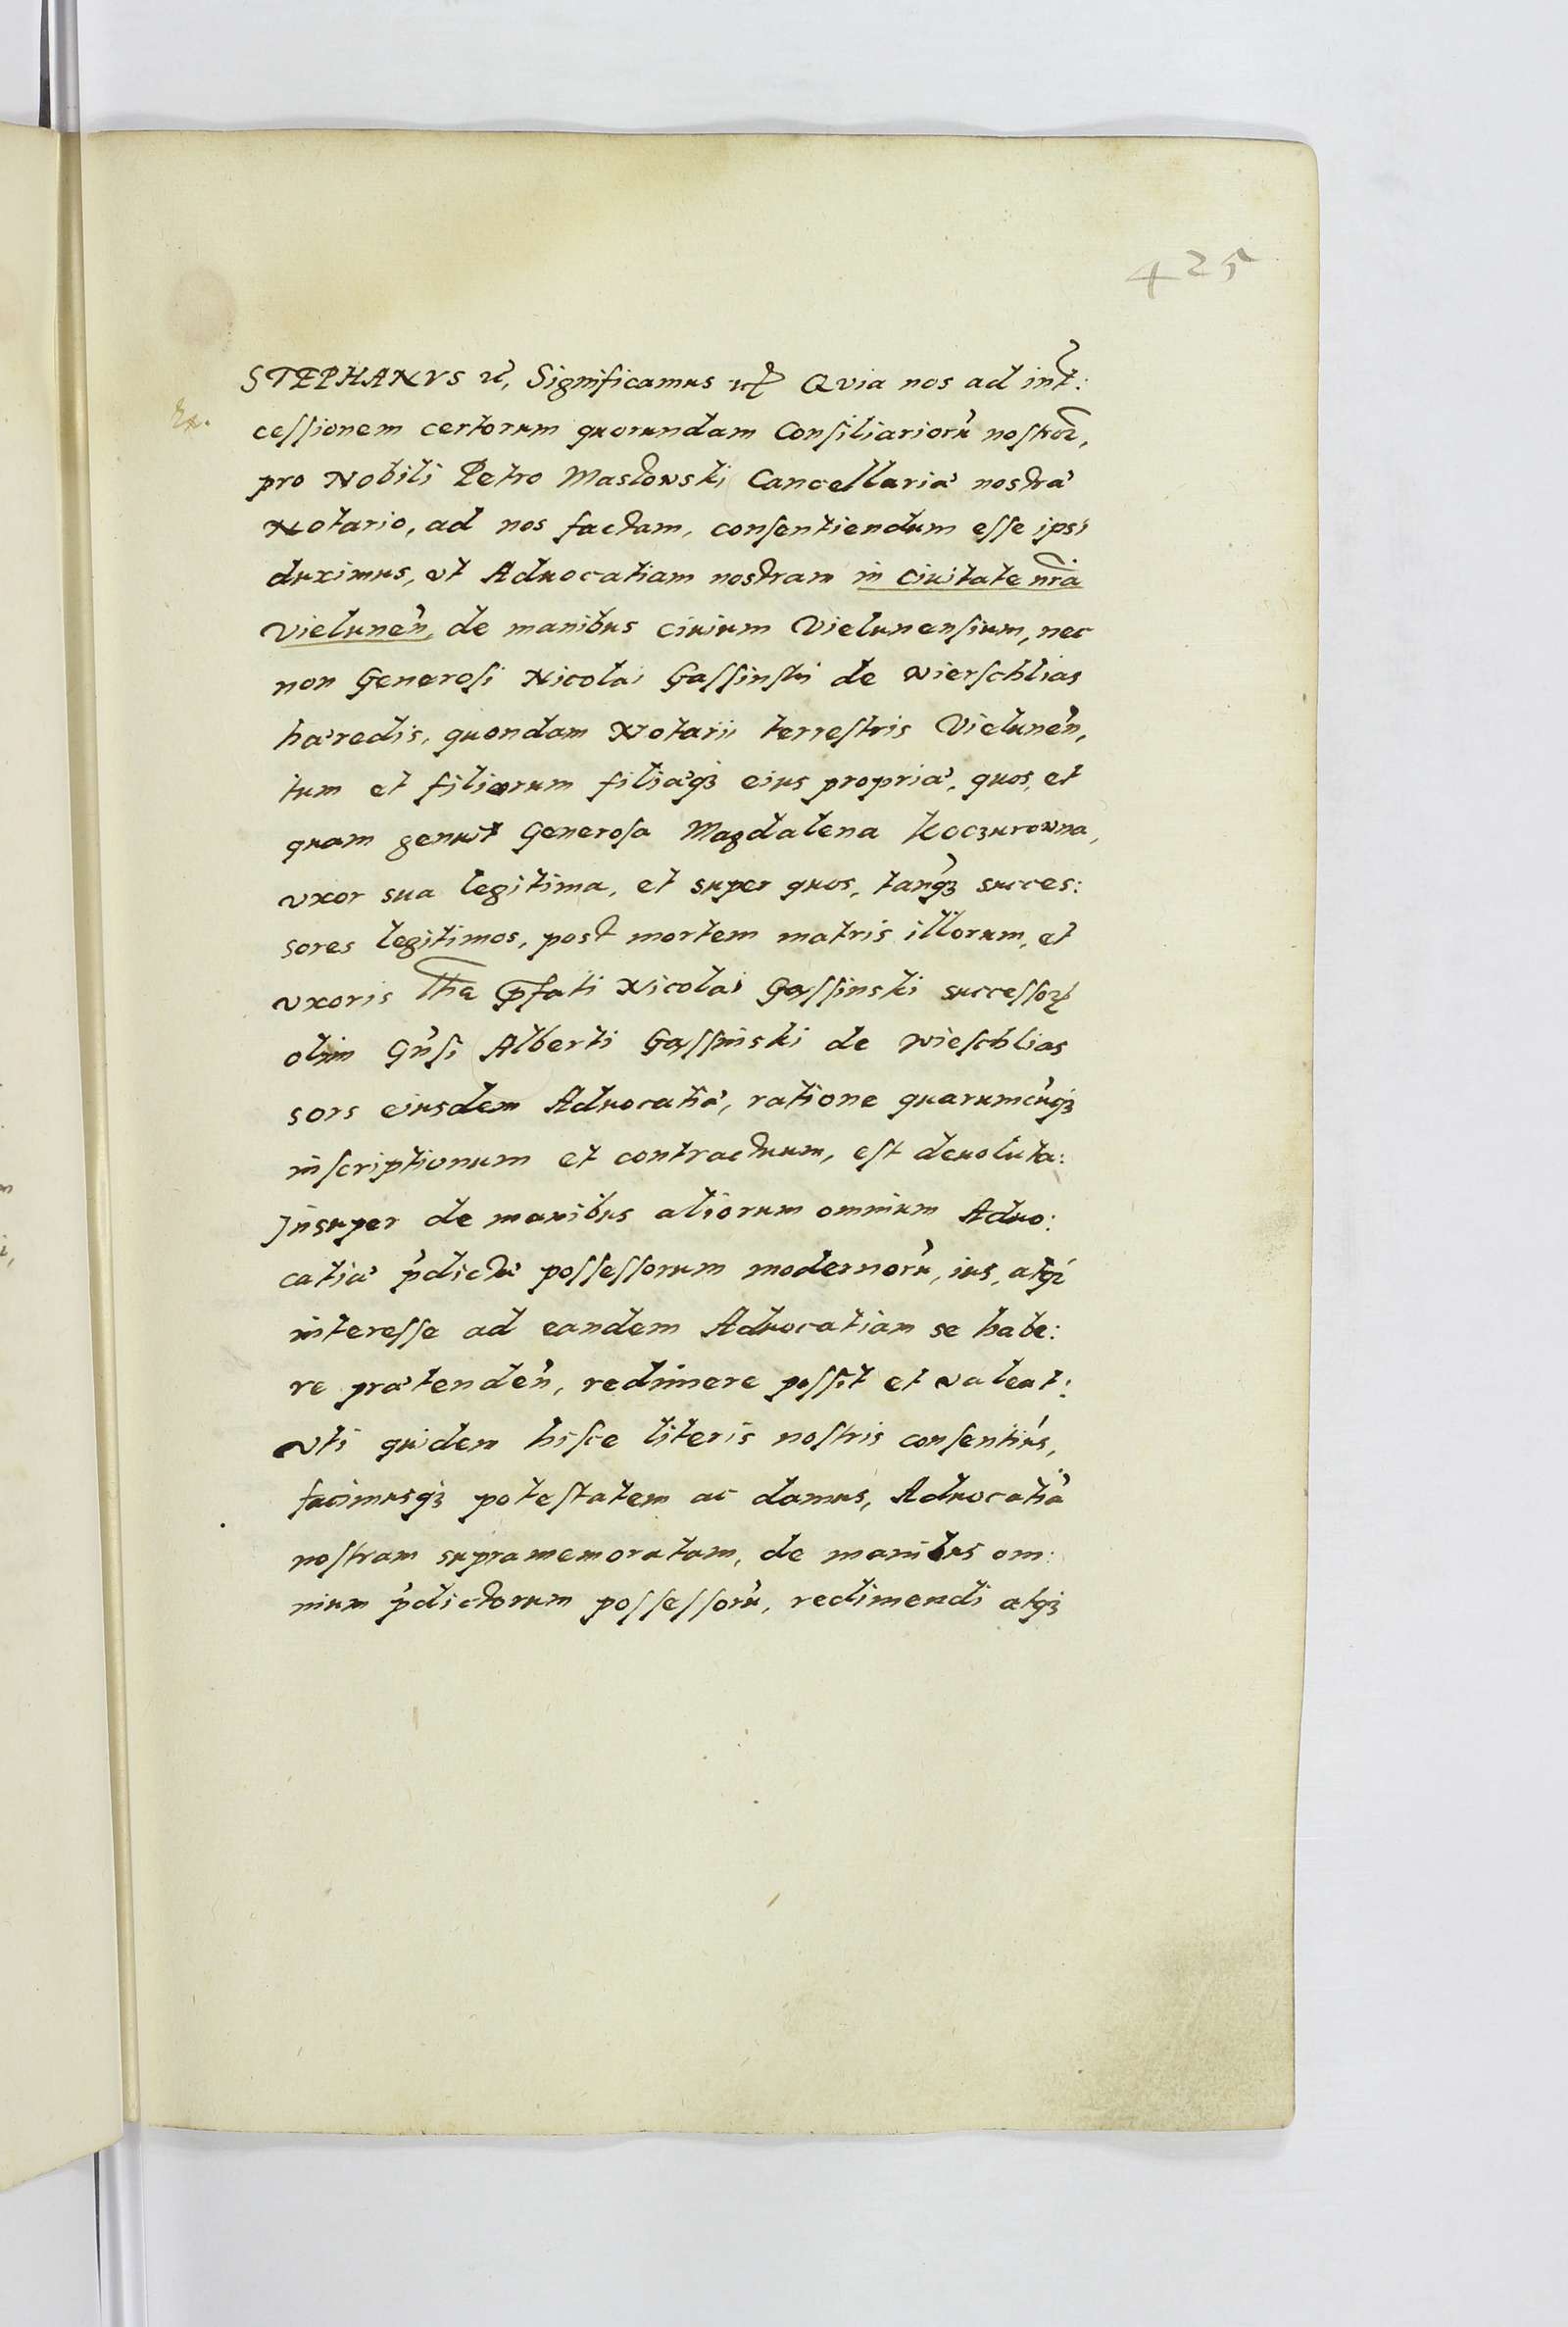 425
STEPHANVS etc, Significamus etc Qvia nos ad int:
cessionem certorum quorundam Consiliariorũ nostror,
pro Nobili Petro Maslowski Cancellariæ nostræ
Notario, ad nos factam, consentiendum esse ipsi
duximus, ut Aduocatiam nostram in Ciuitate nrã
Vielunen̄, de manibus ciuium Vielunensium, nec
non Generosi Nicolai Gassinski de Wierschlias
hæredis, quondam Notarii terrestris Vielunen̄,
tum et filiorum filiæqʒ eius propriæ, quos, et
quam genuit Generosa Magdalena Koczurowna,
vxor sua legitima, et super quos, tanqʒ succes:
sores legitimos, post mortem matris illorum, et
vxoris pfati Nicolai Gassinski successorꝝ
olim Gn̄si Alberti Gassinski de Wieschlias
sors eiusdem Aduocatiæ, ratione quarumcũqʒ
inscriptionum et contractuum, est deuoluta:
Insuper de manibus aliorum omnium Aduo:
catiæ p̄dictæ possessorum modernorũ, ius, atqʒ
interesse ad eandem Aduocatiam se habe:
re prætenden̄, redimere possit et valeat:
Vti quidem hisce literis nostris consentim̃s,
facimusqʒ potestatem ac damus, Aduocatiã
nostram supramemoratam, de manibus om:
nium p̄dictorum possessorũ, redimendi atqʒ